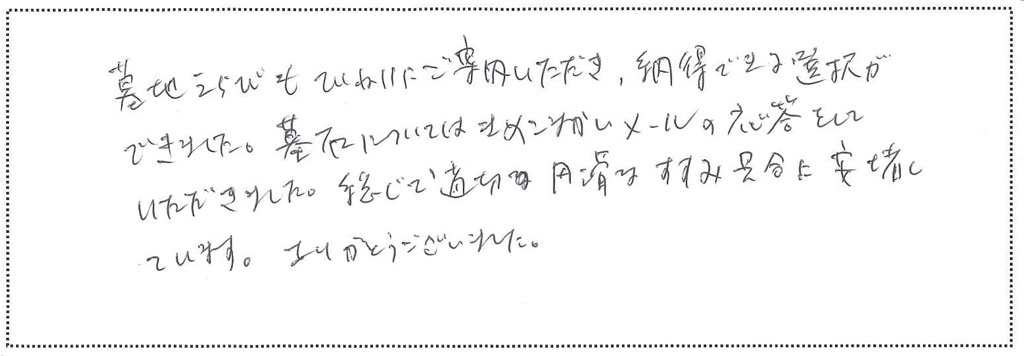 墓地えらびもていねいにご案内いただき、納得できる選択が
できました。墓石についてはきめこまかいメールの応答をして
いただきました。総じて適切な円滑なすすみ具合に安堵し
ています。ありがとうございました。